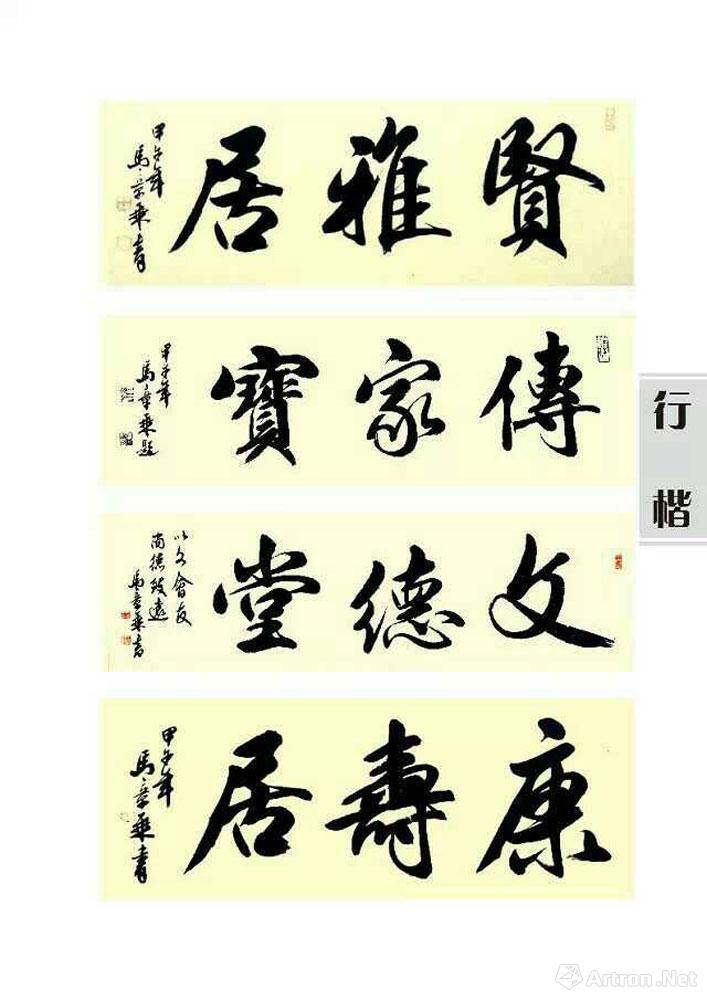 賢雅居
甲午年
馬章乘書
傳家寶
甲午年
馬章乘題
文德堂
以文會友
尚德致遠
馬章乘書
康壽居
甲午年
馬章乘書
行楷
Artron.Net